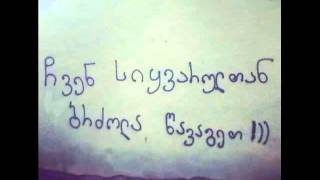 ჩვენ სიყვარულთან
ბრძოლა წავაგეთ !))